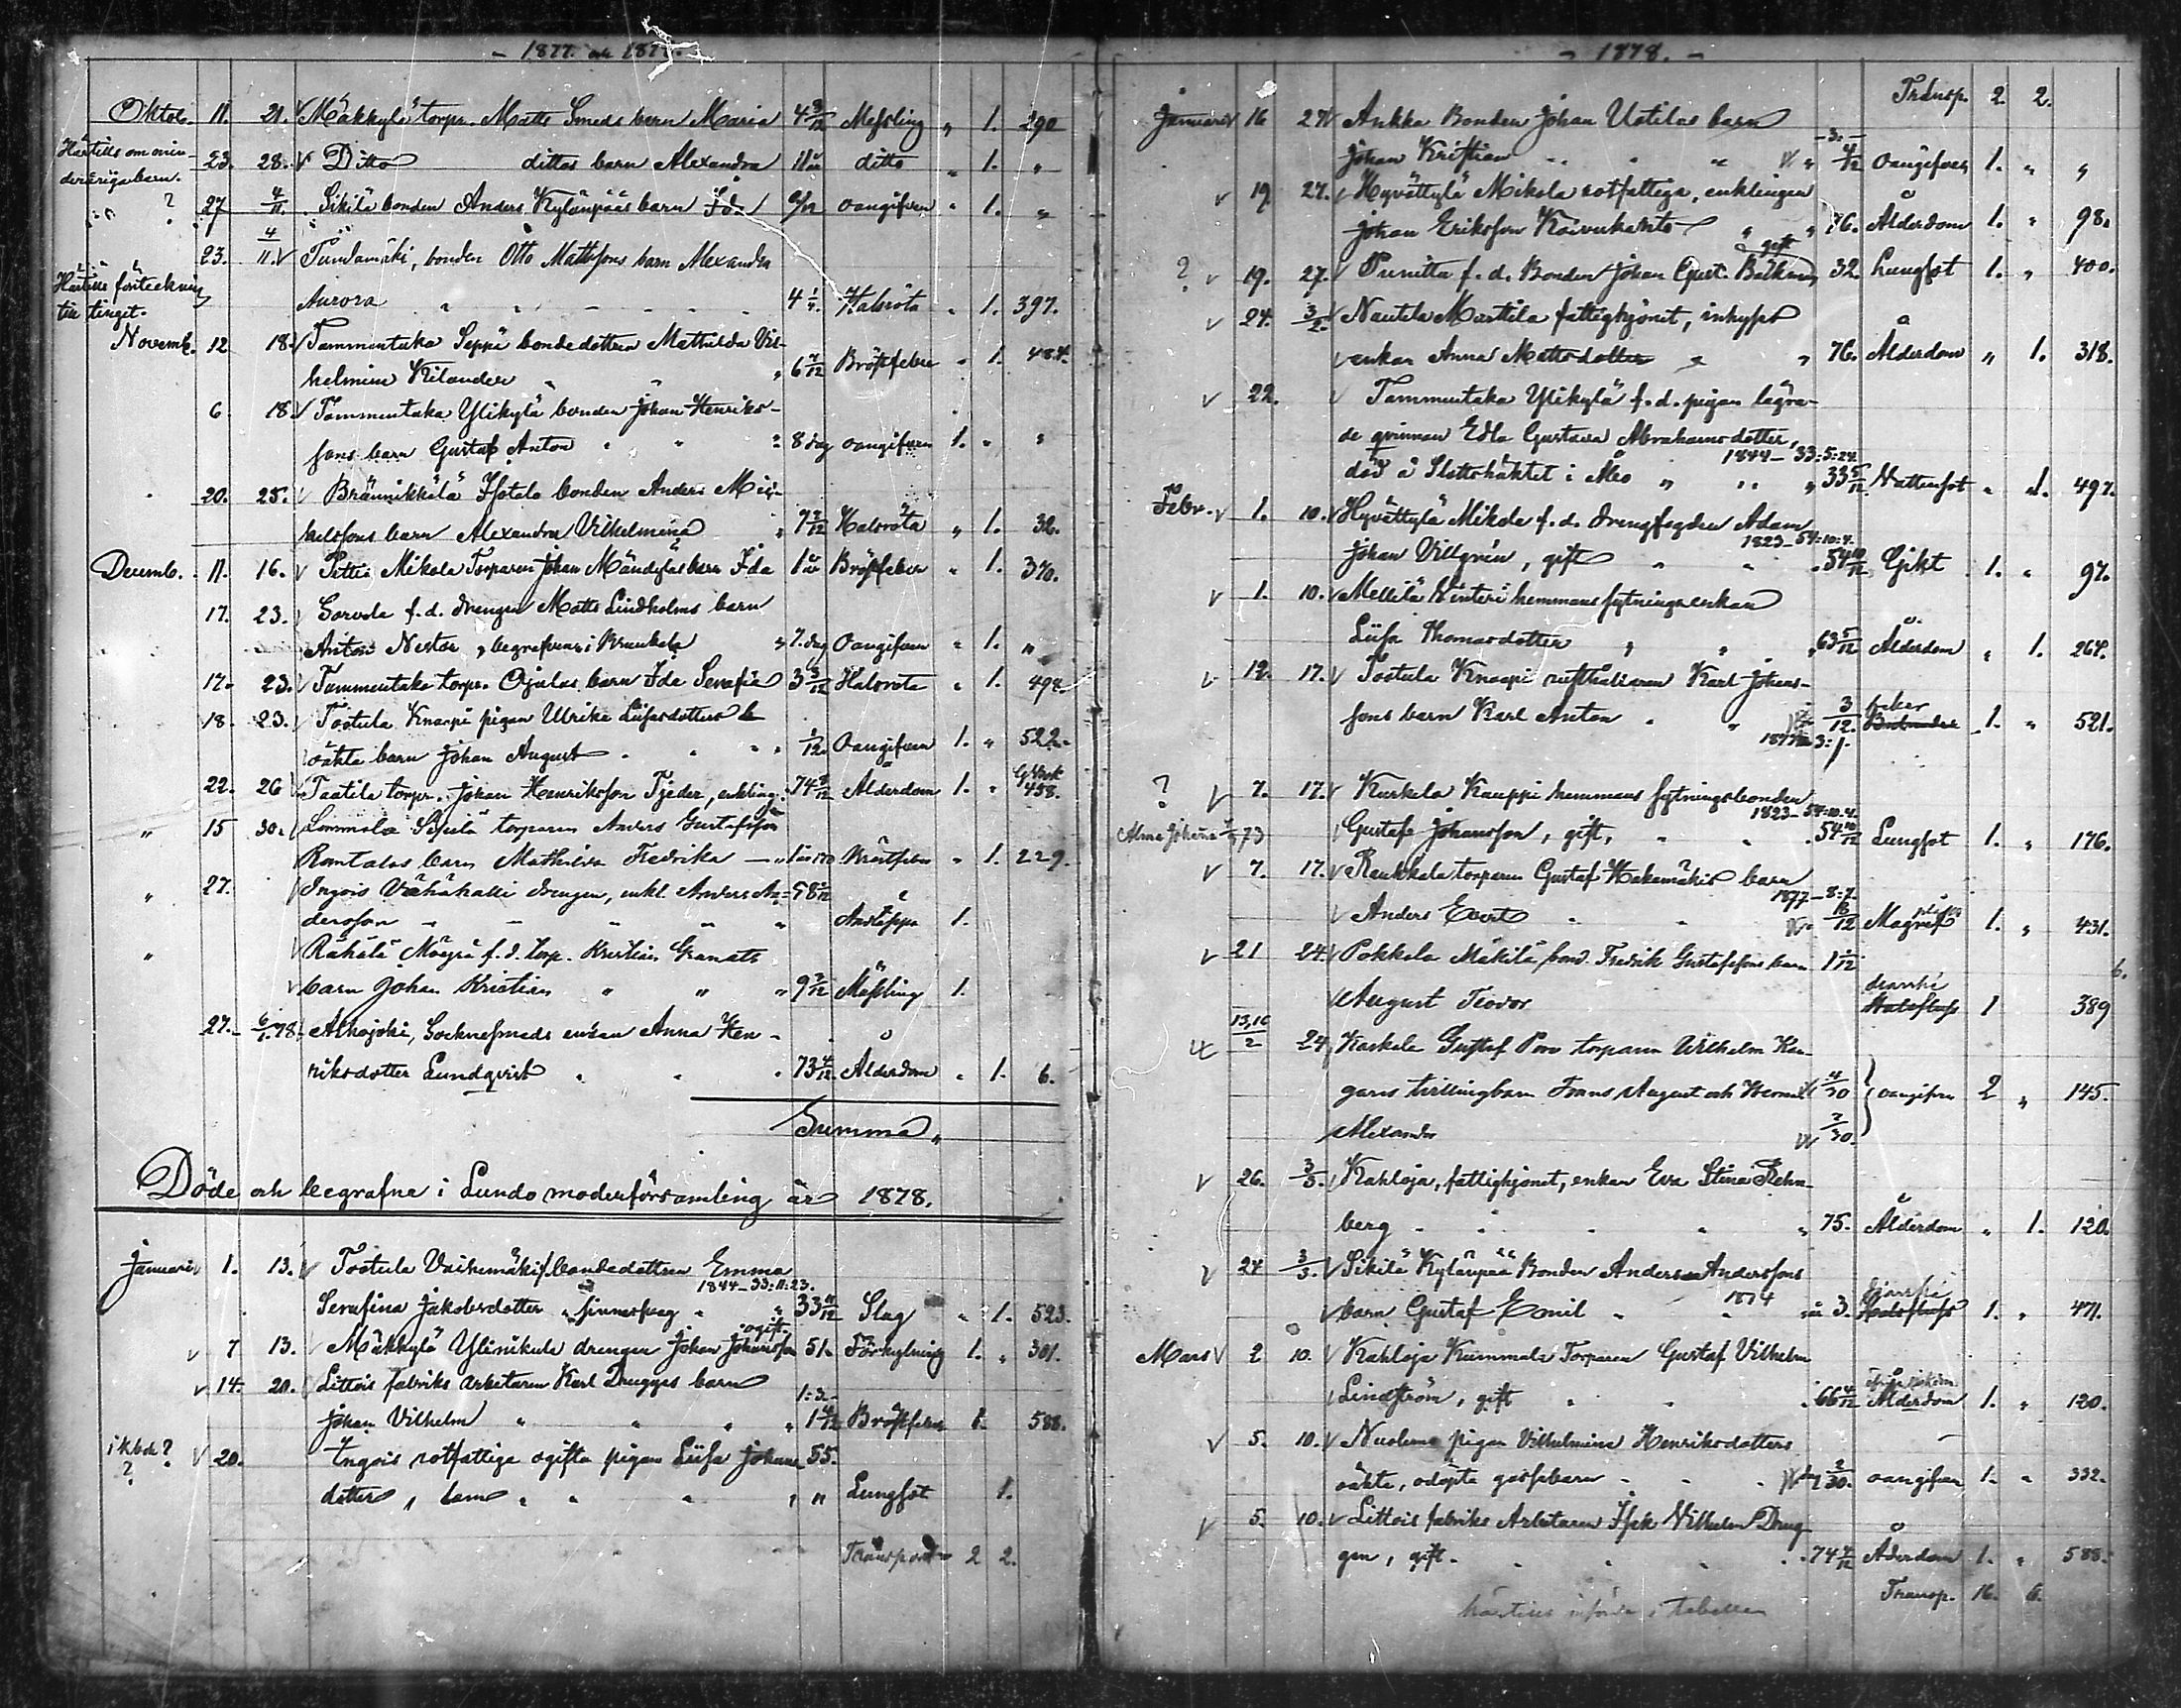 - 1877. och 187
Oktob. 11. 21. Mäkkylä torpr. Matts Smeds barn Maria 4 3/12 Messling „ 1. 290
Härtills om min-
deråriga barn.
23. 28. Ditto dittos barn Alexandra 11 ditto „ 1. „
? 27 4/11. Sikilä bonden Anders Kylänpääs barn Ida /12 oangifven „ 1. „
23. 4/11. bonden Otto Mattssons barn Alexandra
Härtills förteckning
till tinget.
Aurora 4 Halsröta „ 1. 397.
Novemb. 12 18. Tammentaka Seppä bondedottren Mathilda Vil-
helmina Kilander 6 /12 Bröstfeber „ 1. 484.
6. 18. Tammentaka Ylikylä bonden Johan Henriks-
sons barn Gustaf Anton 8 dag oangifven 1. „ „
20. 25. Brännikkälä Isotalo bonden Anders Mic-
helssons barn Alexandra Vilhelmina 7 2/12 Halsröta „ 1. 32.
Decemb. 11. 16. Mikola Torparen Johan Mändyläs barn Ida 1 år Bröstfeber „ 1. 370.
17. 23. Sorvola f.d. drengen Matts Lindholms barn
Anton Nestor, begrafven i Brunkala 7. dag Oangifven „ 1. „
17. 23. Tammentaka torpr. Ojalas barn Ida Serafia 3 3/12 Halsröta „ 1. 492.
18. 23. Töstula Knaapi pigan Ulrika Liisasdotters
oäkta barn Johan August 1/12. Oangifven 1. „ 522.
22. 26 Taatila torpr. Johan Henriksson Tjeder, enkling 74 /12 Ålderdom 1. „ 458.
„ 15 30. Lommola torparen Anders Gustafsson
Rantalas barn Mathilda Fredrika 1 år Bröstfeber „ 1. 229.
„ 27. Ingois Vähähalli drengen, enkl. Anders An- 58 /12
dersson Andtäppa 1.
„ Rähälä Mäyrä f.d. torp. Kristian Granats
barn Johan Kristian „ „ „ 9 2/12 Mässling 1.
27. 6/1.78. Alhojoki, Socknesmeds enkan Anna Hen-
riksdotter Lundqvist 73 4/12. Ålderdom „ 1. 6.
Summa „
Döde och begrafne i Lundo moderförsamling år 1878.
Januari 1. 13. Töstula Vaihemäki f. bondedottren Emma
1844—33:11:23.
Serafina Jakobsdotter 33 11/12 Slag „ 1. 523.
7 13. Mäkkylä Ylinikula drengen Johan Johansson ogift 51. Förkylning 1. „ 301.
14. 20. Littois fabriks arbetaren Karl Drugges barn
1:3.
Johan Vilhelm „ „ „ 1 4/12 Bröstfeber 1. 588.
i kbok?
? 20. Ingois rotfattiga ogifta pigan Liisa Johans- 55.
dotter, lam „ „ Lungsot 1.
Transport 2 2.
- 1878. -
Transp. 2. 2.
Januari 16 27 Ankka Bonden Johan Uotilas barn
Johan Kristian - 3. - 4/12 Oangifven 1. „ „
19. 27. Hyvättylä Mikola rotfattiga, enklingen
Johan Eriksson Koivukanto „ „ 76. Ålderdom 1. „ 98.
? 19. 27. Punitta f.d. Bonden Johan Gust. Bäkman gift 32. Lungsot 1. „ 400.
24. 3/2. Nautela Marttila fattighjonet, inhyses
enkan Anna Mattsdotter „ „ 76. Ålderdom „ 1. 318.
22. Tammentaka Ylikylä f.d. pigan lägra-
de qvinnan Edla Gustava Abrahamsdotter,
1844—33:5:24.
död å Slottshäktet i Åbo „ „ 33 5/12 Vattensot „ 1. 497.
Febr. 1. 10. Hyvättylä Mikola f.d. drengfogden Adam
1823—54:10:4.
Johan Villgrén, gift 54 10/12 Gikt 1. „ 97.
1. 10. Mellilä hemmans sytningsenkan
Liisa Thomasdotter „ 63 5/12 Ålderdom „ 1. 264.
12. 17. Tostula Knaapi rusthållaren Karl Johans-
sons barn Karl Anton 3/12. 1. „ 521.
? 7. 17. Kurkela Kauppi hemmans sytningsbonden
1823—54:10:4.
Alma Johana 73 Gustaf Johansson, gift, 54 10/12 Lungsot 1. „ 176.
7. 17. Raukkala torparen Gustaf Hakamäkis barn
1877—8:7.
Anders Evert 8/12 Magref 1. „ 431.
21 24. Pokkola Mäkilä bond. Fredrik Gustafssons barn 1 1/12
6.
August Teodor Halsfluss 1 389
15,16/2 24 Kaskala Gustaf Poro torparen Wilhelm Kan-
gars tvillingbarn Frans August och Herman 4/30 oangifven 2 „ 145.
Alexander 2/30.
26. 3/3. Kahloja, fattighjonet, enkan Eva Stina Rehn-
berg 75. Ålderdom „ 1. 120.
24 3/3. Sikilä Kylänpää Bonden Anders Anderssons
1874
barn Gustaf Emil 3. Halsfluss 1. „ 471.
Mars 2 10. Kahloja Kummala Torparen Gustaf Vilhelm
Lindström, gift 66 4/12 Ålderdom 1. „ 120.
5. 10. Nuolemo pigan Vilhelmina Henriksdotters
oäkta, odöpta gossebarn dag 2/30. oangifven 1. „ 332.
5. 10. Littois fabriks Arbetaren Isak Vilhelm Drug-
gen, gift. 74 4/12 Ålderdom 1. „ 588.
Transp. 16. 6.
härtills införda i tabellen